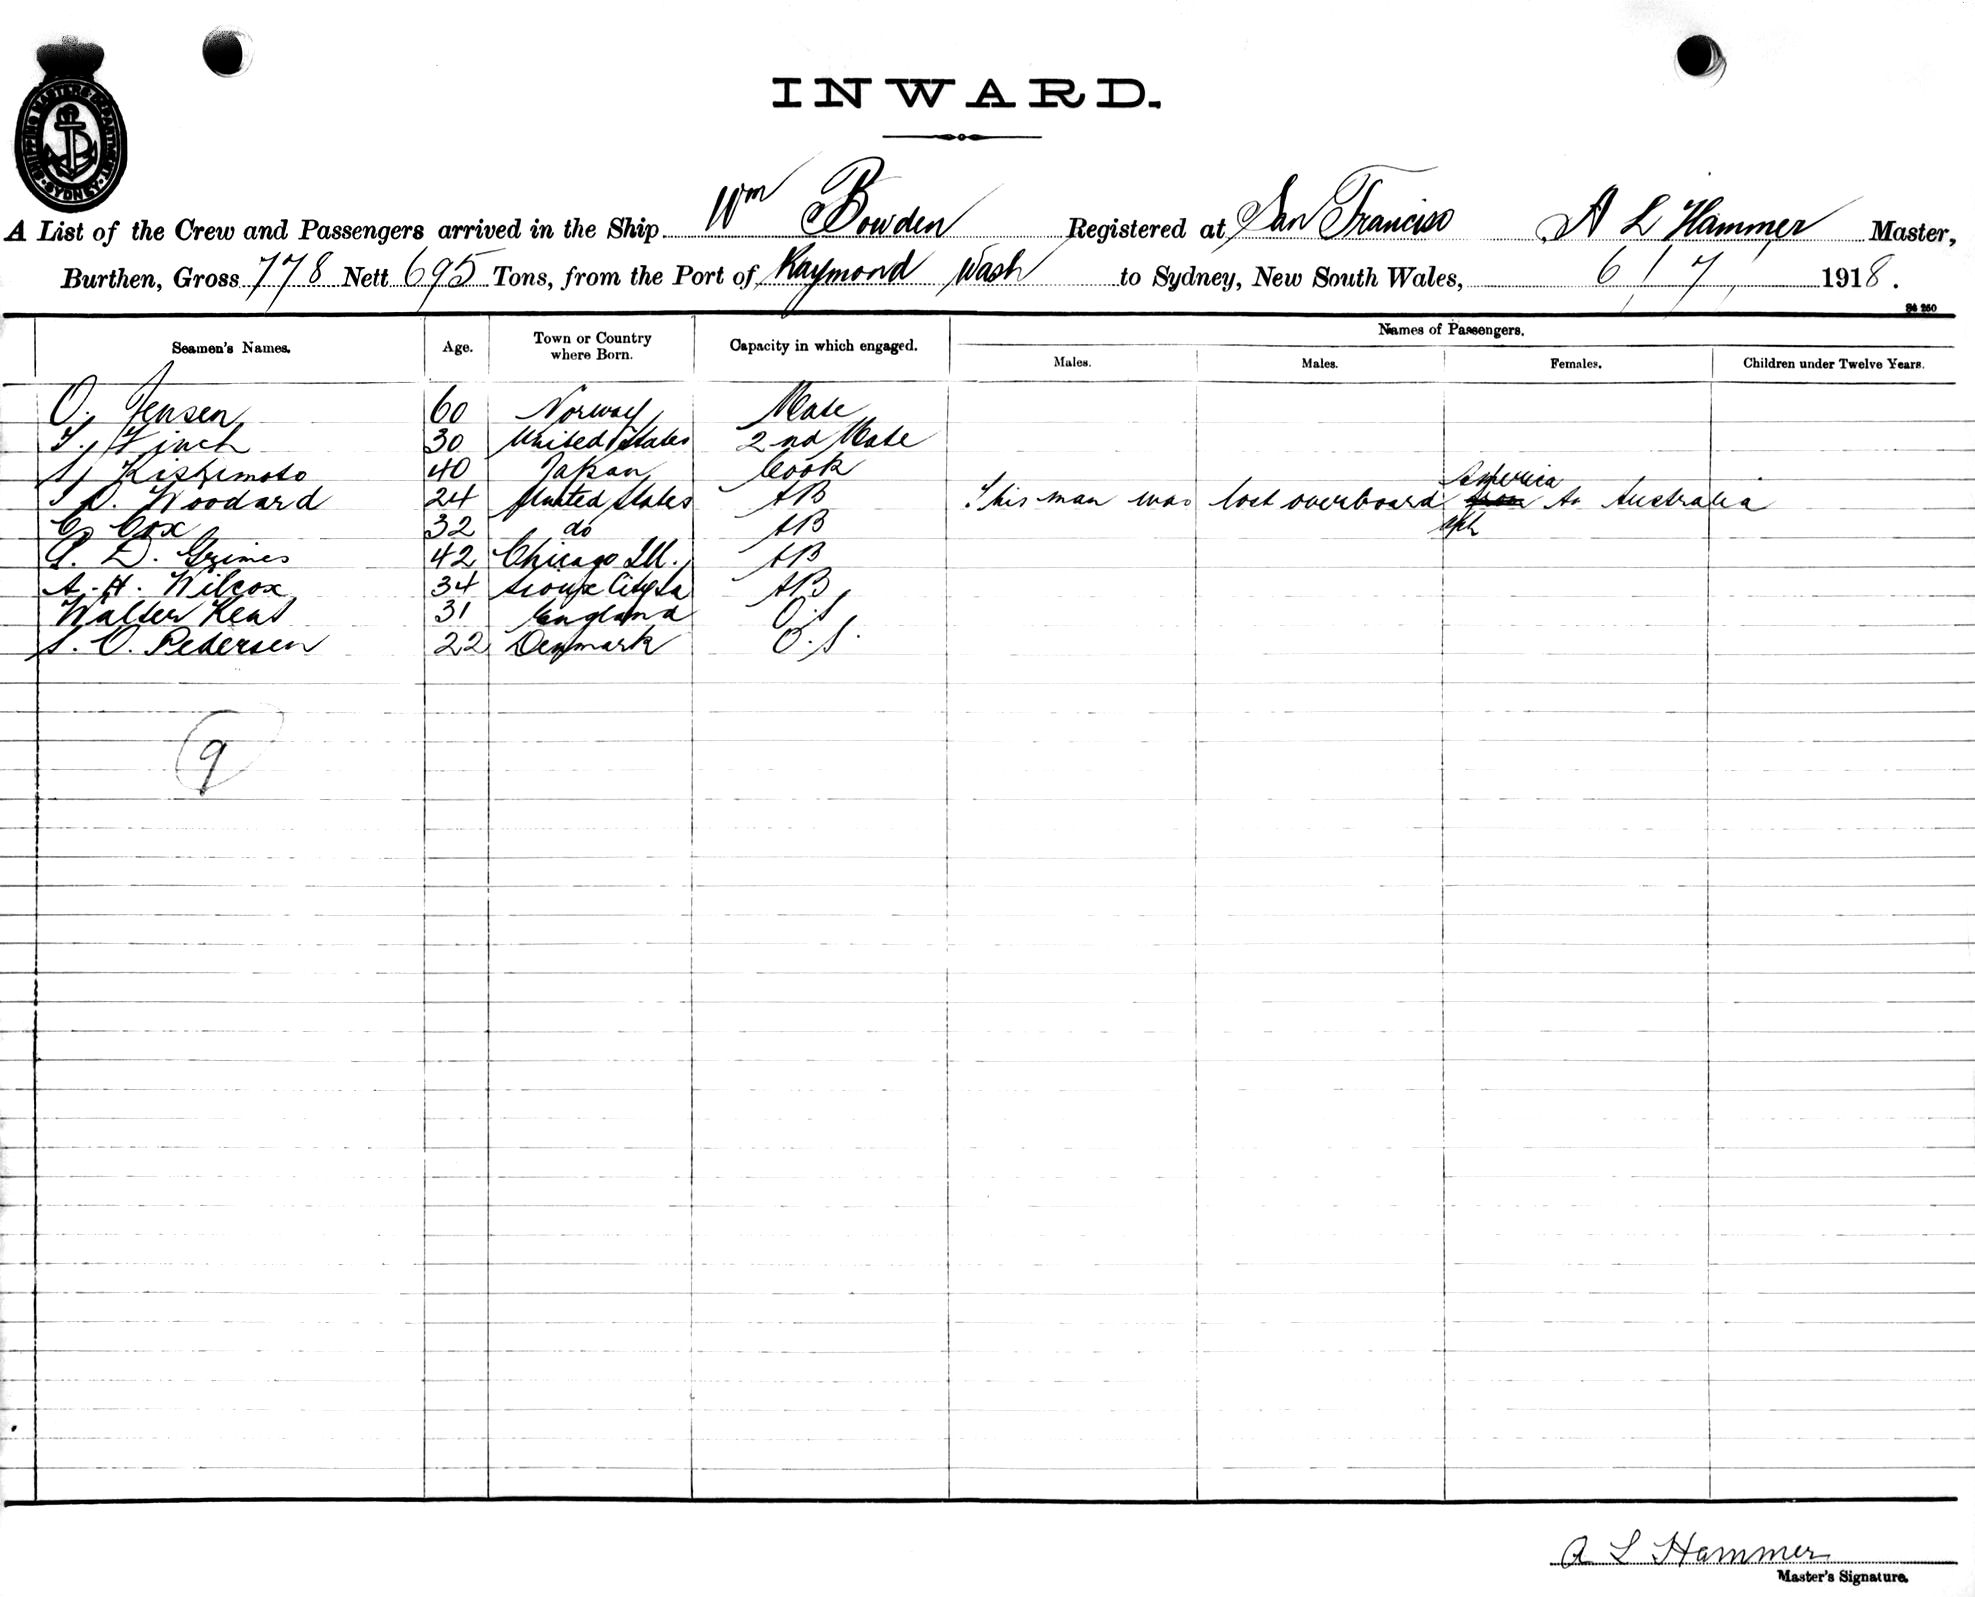 INWARD.
SHIPPING MASTERS DEPARTMENT SYDNEY
A List of the Crew and Passengers arrived in the Ship Wm Bowden Registered at San Francisco A L Hammer Master,
Burthen, Gross 778 Nett 695 Tons, from the Port of Raymond Wash to Sydney, New South Wales, 6/7/1918.
Seamen's Names. Age. Town or Country where Born. Capacity in which engaged. Names of Passengers.
Males. Males. Females. Children under Twelve Years.
O. Jensen 60 Norway Mate
T. Finch 30 United States 2nd Mate
S. Kishimoto 40 Japan Cook
America
D. Woodard 24 United States AB This man was lost overboard to Australia
C. Cox 32 do AB
D. Grimes 42 Chicago Ill. AB
A. H. Wilcox 34 Sioux City Ia AB
Walter Kent 31 England O.S
S. O. Pedersen 22 Denmark O.S.
9
A L Hammer
Master's Signature.